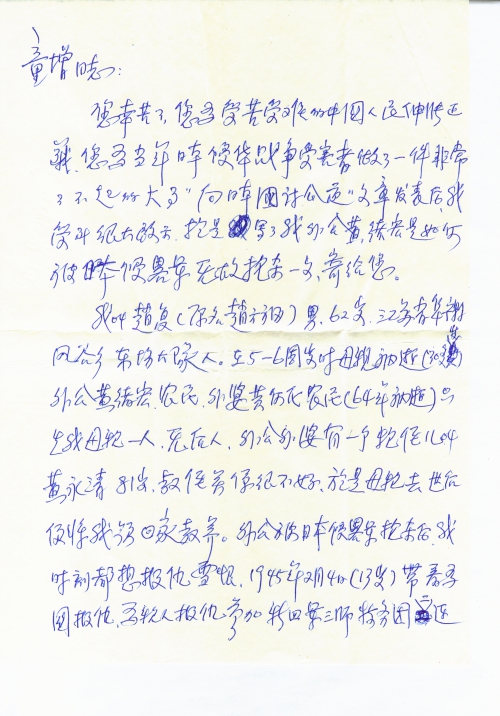 童增同志:
您辛苦了,您为受苦受难的中国人民伸张正
义,您为当年日军侵华战争受害者做了一件非常
了不起的大事"向日本国讨公道"文章发表后,我
受到很大启示,于是写了我外公黄绪宏是如何
被日本侵略军无故枪杀一文,寄给您。
我叫赵复(原名赵方田)男,62岁,江苏省
网 乡东 大队人。在5-6周岁时母亲初逝(30)
外公黄绪宏,农民,外婆黄何氏农民(64年初逝)只
生我母亲一人,无后人,外公外婆有一个抱侄儿叫
黄永清81岁,教侄 系很不好,于是母亲去世后
便将我领回家教养。外公被日本侵略军枪杀后,我
时刻都想报仇雪恨,1945年2月4日(13岁)带着为
国报仇,为亲人报仇参加新四军三师特务团 连